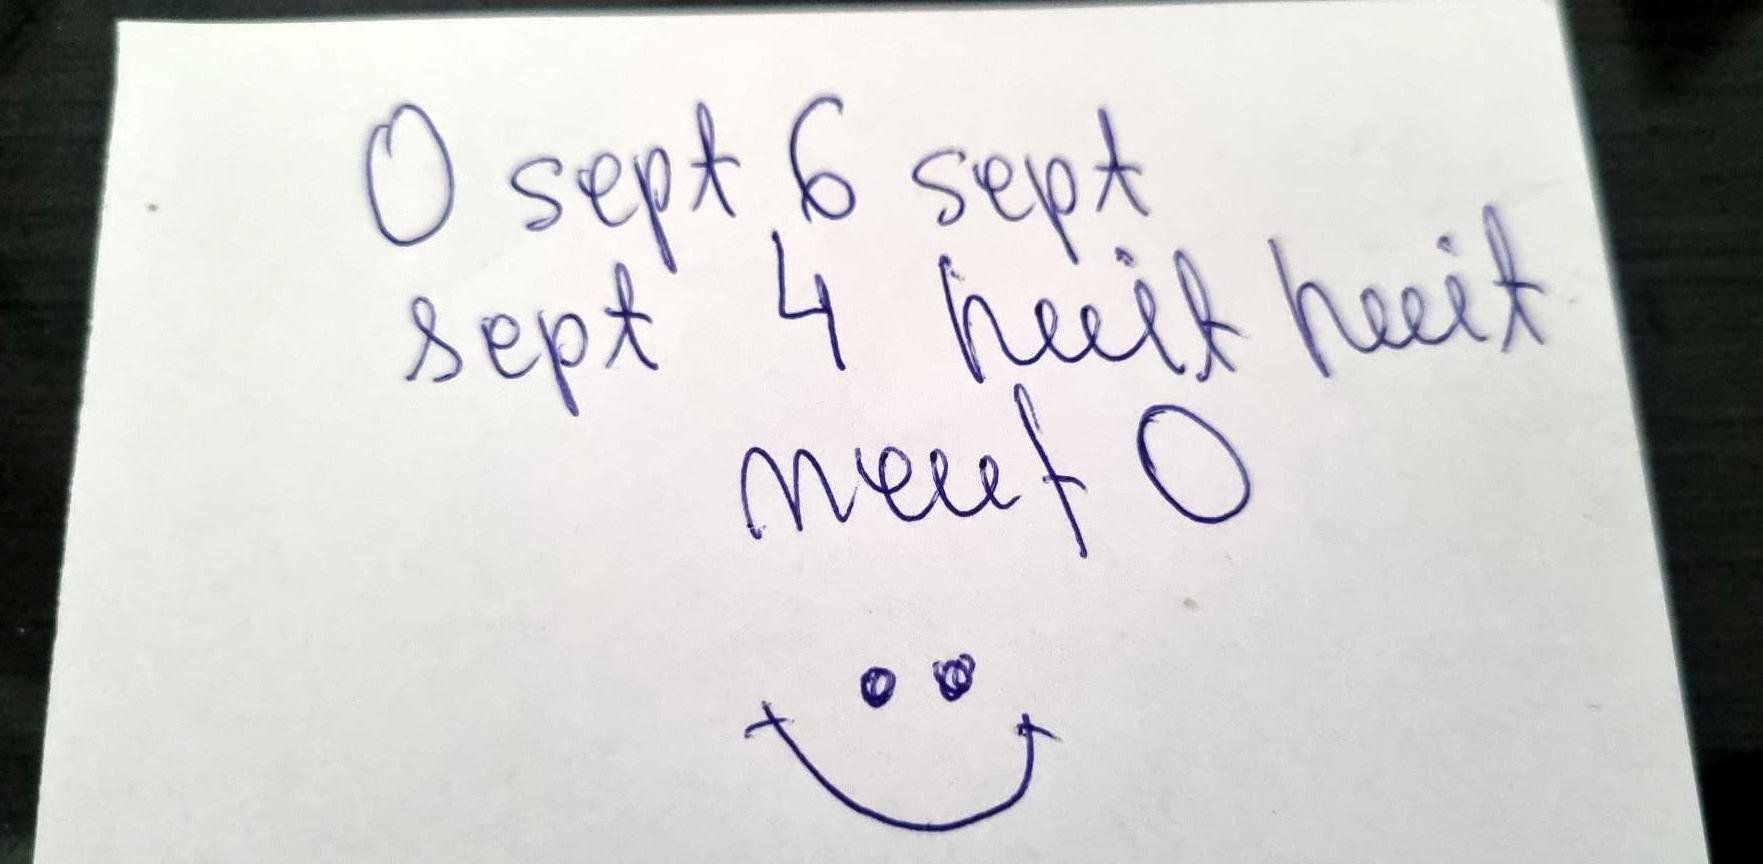 0 sept 6 sept
sept 4 huit huit
neuf 0